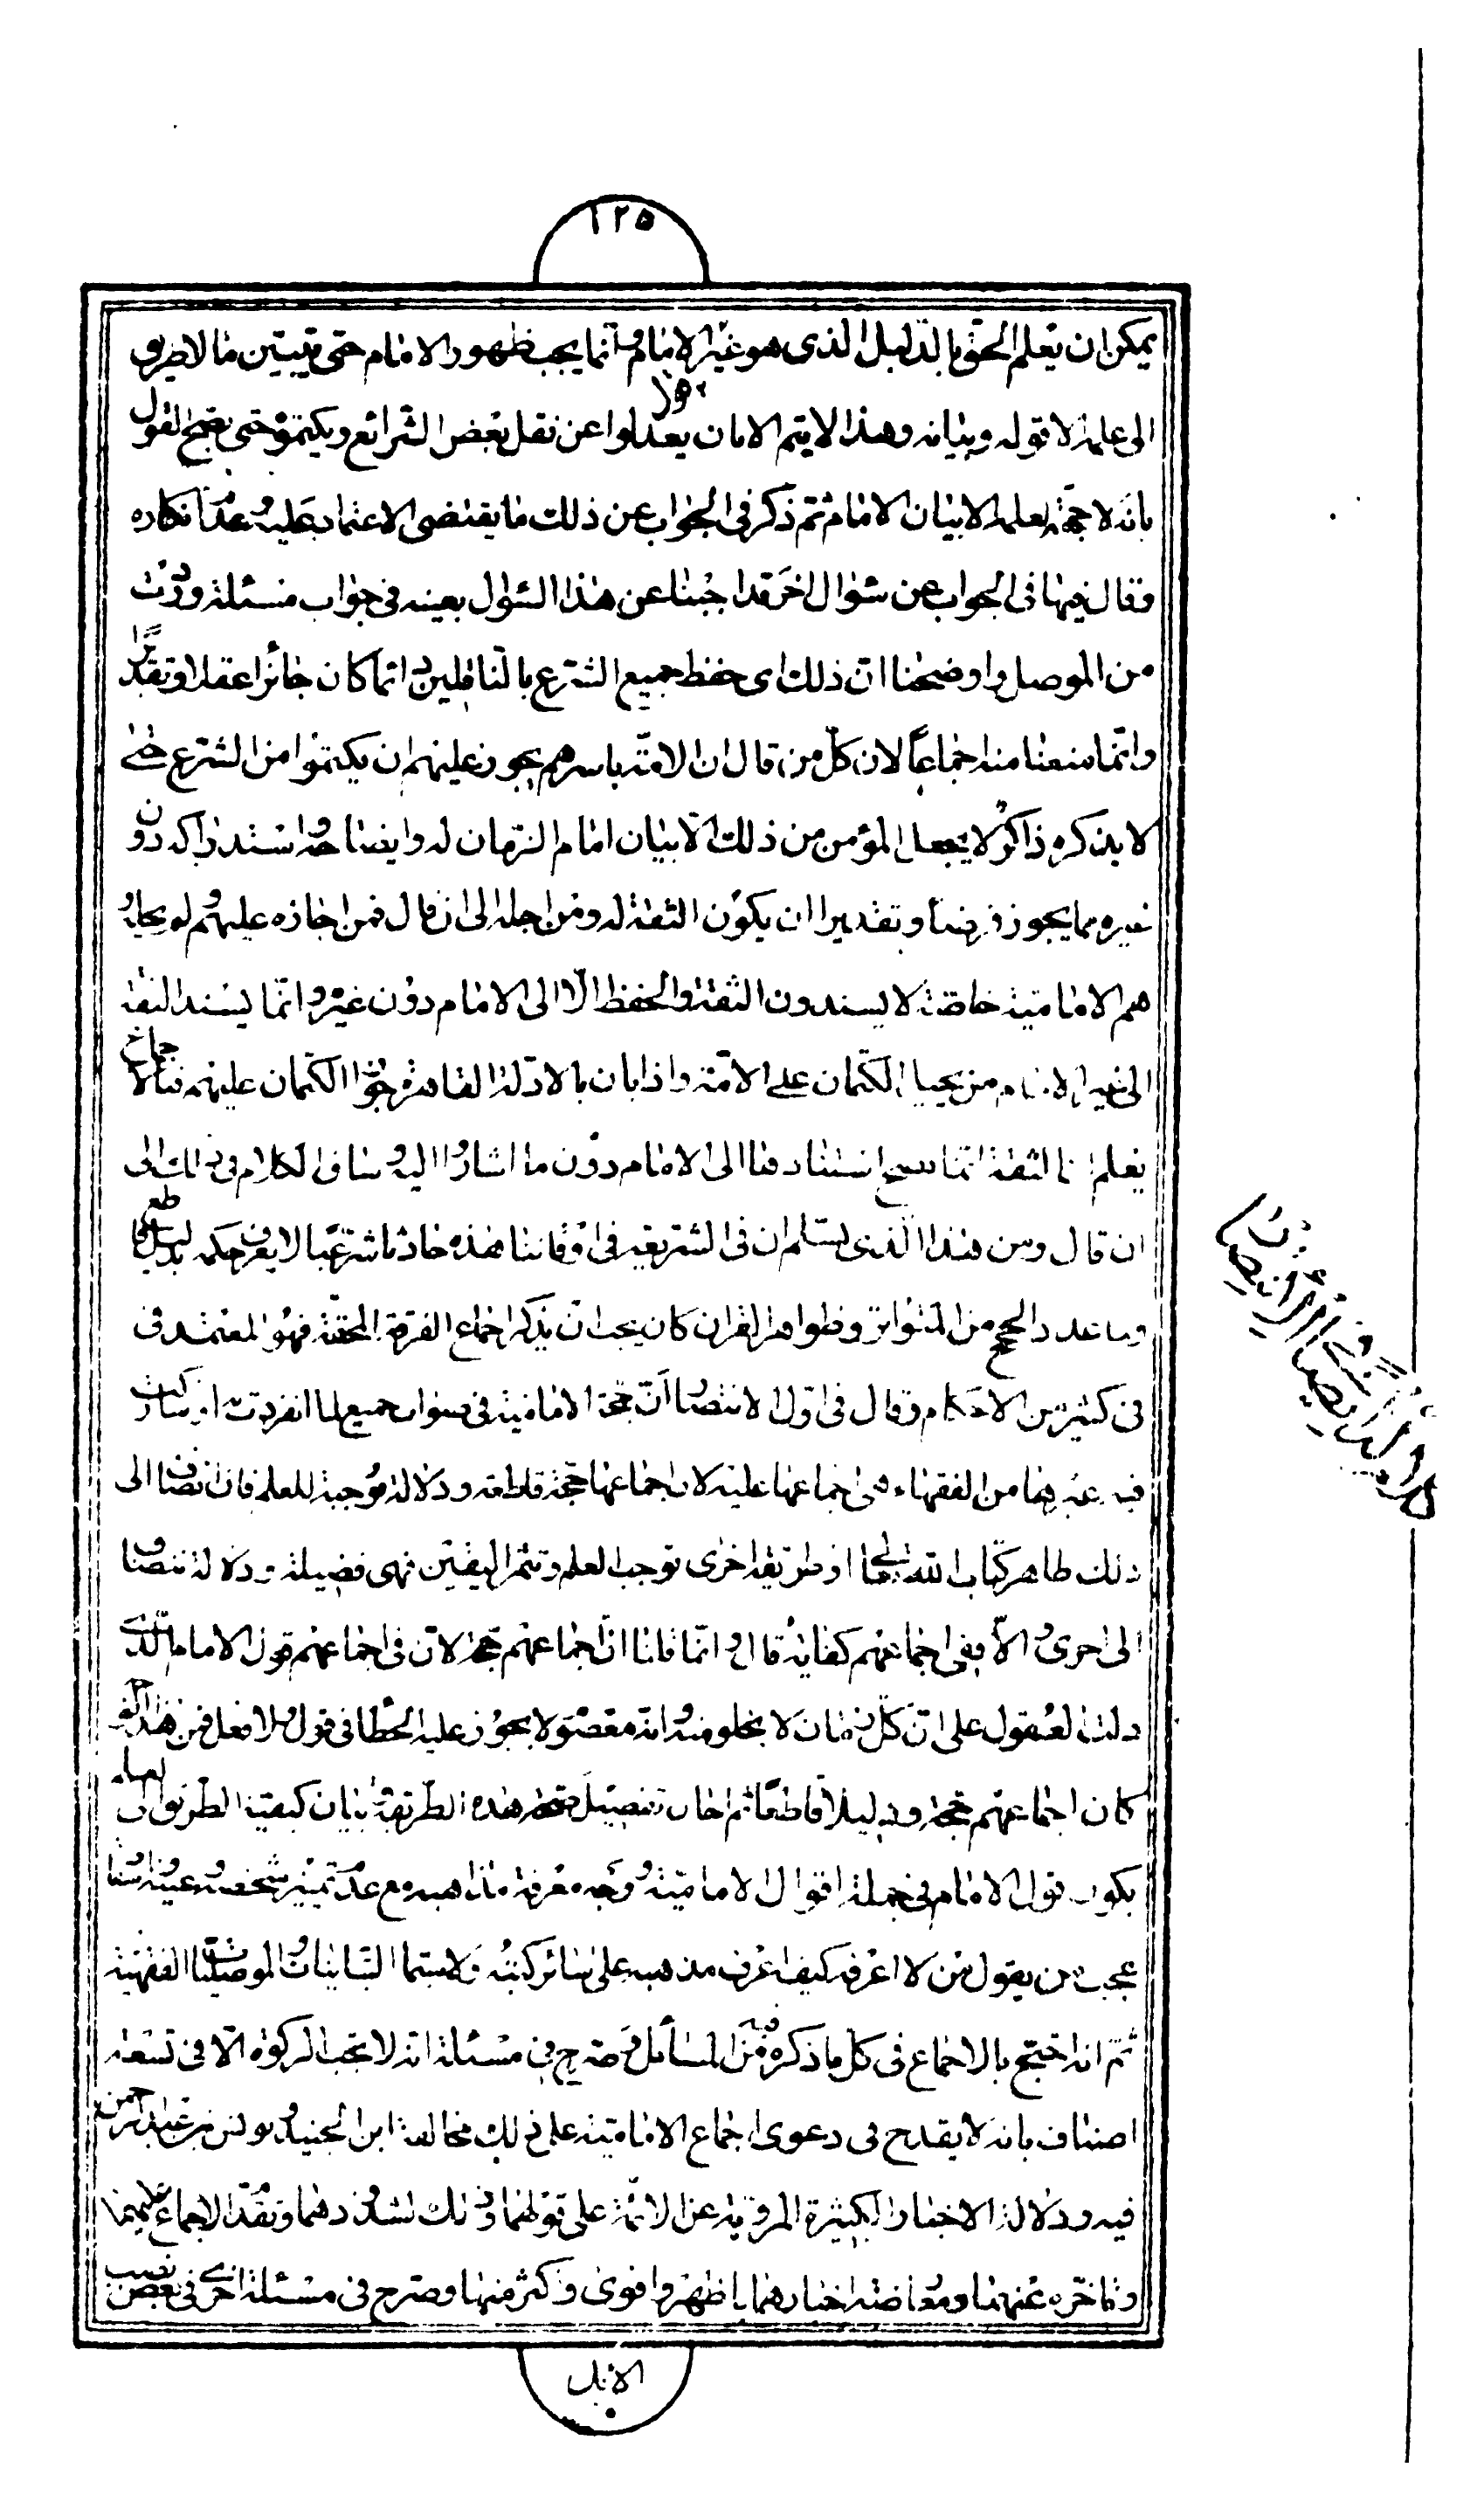 ١٢٥
يمكن ان تعلم الحق بالدليل الذى هو غير الامام وانما يجب ظهور الامام حتى يتبين ما لا طريق
الى علمه الا قوله وبيانه وهذا لا يتم الا بان يعدلوا عن نقل بعض الشرائع ويكتموه حتى يصح القول
بانه لا جهة لعلمه الا بيان الامام ثم ذكر فى الجواب عن ذلك ما يقتضى الاعتماد عليه وعدم انكاره
وقال فيها فى الجواب عن سؤال اخر قد اجبنا عن هذا السؤال بعينه فى جواب مسئلة وردت
من الموصل واوضحنا ان ذلك اى حفظ جميع الشرع بالناقلين انما كان جائزا عقلا وتقديرا
وانما منعنا منه اجماعا لان كل من قال ان الامة باسرهم يجوز عليهم ان يكتموا من الشرع حتى
لا يذكره ذاكر لا يجعل المؤمن من ذلك الا بيان امام الزمان له وايضاحه واستدراكه دون
غيره مما يجوز فرضا وتقديرا ان يكون الثقة له ومن اجله الى ان قال فمن اجازه عليهم
هم الامامية خاصة لا يسندون الثقة والحفظ الا الى الامام دون غيره وانما يسند الثقة
الى غير الامام من يحيل الكتمان على الامة واذا بان بالادلة القاهرة جواز الكتمان عليهم فبالاجماع
يعلم ان الثقة انما يصح استنادها الى الامام دون ما اشاروا اليه وساق الكلام فى ذلك الى
ان قال ومن هذا الذى يسلم ان فى الشريعة فى اوقاتنا هذه حادثا شرعيا لا يعرف حكمه بدليل قاطع
وما عدد الحجج من المتواتر وظواهر القران كان يجب ان يذكر اجماع الفرقة المحقة فهو المعتمد فى
فى كثير من الاحكام وقال فى اول الانتصار ان حجة الامامية فى صواب جميع ما انفردت او شاركت
فيه غيرها من الفقهاء هى اجماعها عليه لان اجماعها حجة قاطعة ودلالة موجبة للعلم فان انضاف الى
ذلك ظاهر كتاب الله تعالى او طريقة اخرى توجب العلم وتثمر اليقين فهى فضيلة ودلالة تنضاف
الى اخرى والا ففى اجماعهم كفاية قال وانما قلنا ان اجماعهم حجة لان فى اجماعهم قول الامام الذى
دلت العقول على ان كل زمان لا يخلو منه وانه معصوم لا يجوز عليه الخطا فى قول ولا فعل فمن هذا الوجه
كان اجماعهم حجة ودليلا قاطعا ثم احال تفصيل هذه الطريقة ببيان كيفية الطريق الى العلم
بكون قول الامام فى جملة اقوال الامامية ووجه معرفة مذاهبه مع عدم تميز شخصه وعينه
عجب من يقول من لا اعرفه كيف اعرف مذهبه على سائر كتبه ولا سيما التبانيات والموصليات الفقهية
ثم انه احتج بالاجماع فى كل ما ذكره فيه من المسائل وصرح فى مسئلة انه لا تجب الزكوة الا فى تسعة
اصناف بانه لا يقدح فى دعوى اجماع الامامية على ذلك مخالفة ابن الجنيد ويونس بن عبد الرحمن
فيه ودلالة الاخبار الكثيرة المروية عن الائمة على قولهما وذلك لشذوذهما وتقدم الاجماع عليهما
وتاخره عنهما ومعارضة اخبارهما باظهر واقوى واكثر منها وصرح فى مسئلة اخرى فى بعض نصب
الابل